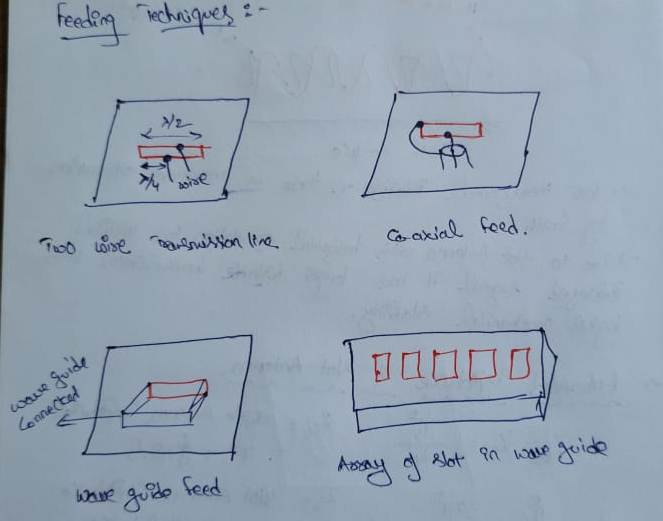 Feeding Techniques :-
λ/2
λ/4 wire
Two wire Transmission line
Co-axial feed.
wave guide
connected
wave guide feed
Array of slot in wave guide